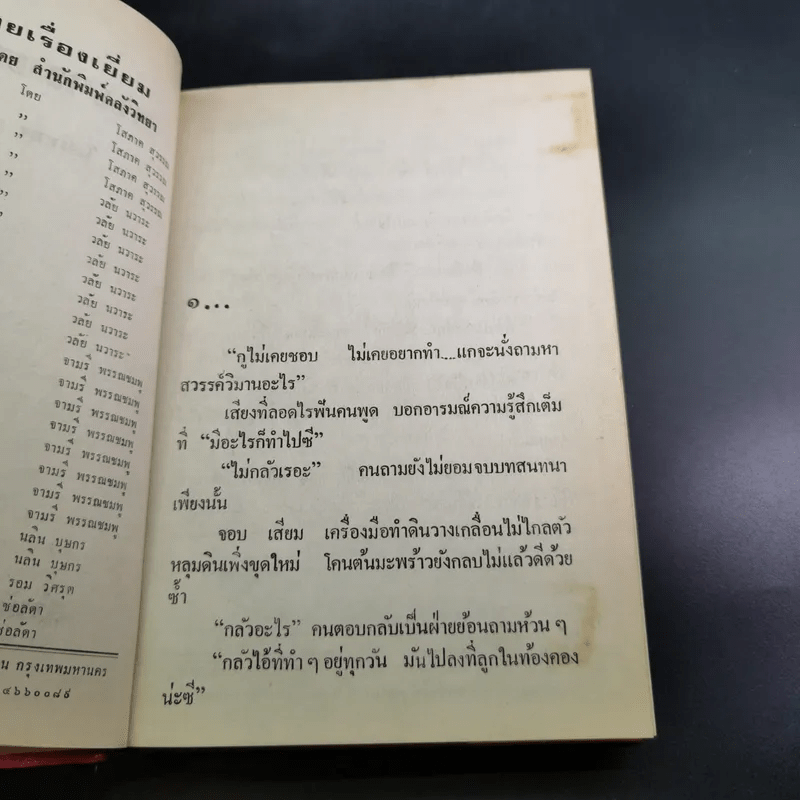 ยเรื่องเยี่ยม
ดย สำนักพิมพ์คลังวิทยา
โดย โสภาค สุวรรณ
” โสภาค สุวรรณ
” โสภาค สุวรรณ
” โสภาค สุวรรณ
” วลัย นวาระ
” วลัย นวาระ
” วลัย นวาระ
วลัย นวาระ
วลัย นวาระ
วลัย นวาระ
วลัย นวาระ
วลัย นวาระ
จามรี พรรณชมพู
จามรี พรรณชมพู
จามรี พรรณชมพู
จามรี พรรณชมพู
จามรี พรรณชมพู
จามรี พรรณชมพู
จามรี พรรณชมพู
จามรี พรรณชมพู
นลิน บุษกร
นลิน บุษกร
รอม วิศรุต
ช่อลัดา
ช่อลัดา
น กรุงเทพมหานคร
๔๖๖๐๐๘๙
๑...
“กูไม่เคยชอบ ไม่เคยอยากทำ....แกจะนั่งถามหา
สวรรค์วิมานอะไร”
เสียงที่ลอดไรฟันคนพูด บอกอารมณ์ความรู้สึกเต็ม
ที่ “มีอะไรก็ทำไปซี”
“ไม่กลัวเรอะ” คนถามยังไม่ยอมจบบทสนทนา
เพียงนั้น
จอบ เสียม เครื่องมือทำดินวางเกลื่อนไม่ไกลตัว
หลุมดินเพิ่งขุดใหม่ โคนต้นมะพร้าวยังกลบไม่แล้วดีด้วย
ซ้ำ
“กลัวอะไร” คนตอบกลับเป็นฝ่ายย้อนถามห้วน ๆ
“กลัวไอ้ที่ทำ ๆ อยู่ทุกวัน มันไปลงที่ลูกในท้องคอง
น่ะซี”